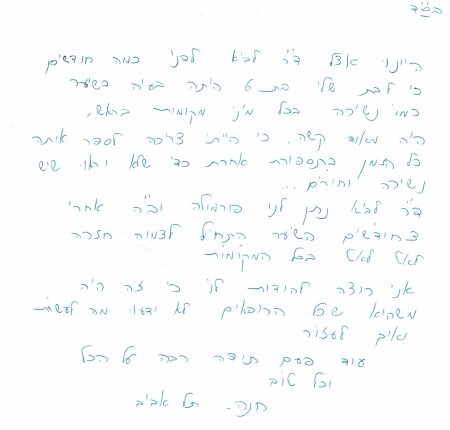 בס"ד
היינו אצל ד"ר לביא לפני כמה חודשים
כי לבת שלי בת 6 היתה בעיה בשיער
כמו נשירה בכל מיני מקומות בראש,
היה מאוד קשה, כי הייתי צריכה לספר איתה
כל הזמן בתספורת אחרת כדי שלא יראו שיש
נשירה וחורים...
ד"ר לביא נתן לנו פורמולה וב"ה אחרי
2 חודשים השיער התחיל לצמוח חזרה
לאט לאט בכל המקומות
אני רוצה להודות לו כי זה היה
משהו שכל הרופאים לא ידעו מה לעשות
ואיך לעזור
עוד פעם תודה רבה על הכל
וכל טוב
חנה - תל אביב